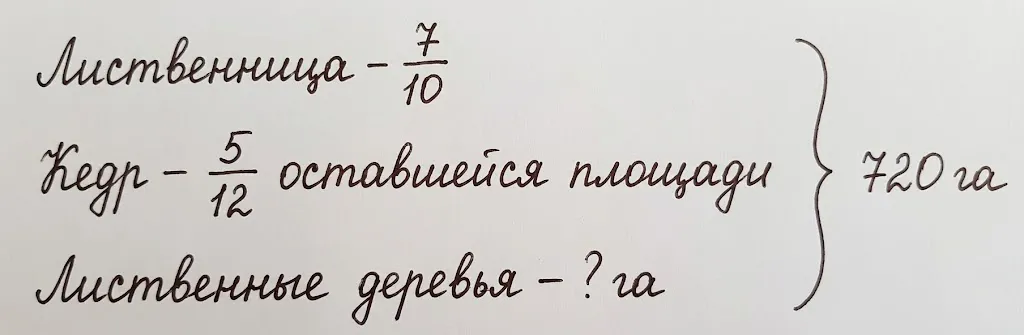 Лиственница – 7/10
Кедр – 5/12 оставшейся площади
Лиственные деревья – ? га
720 га